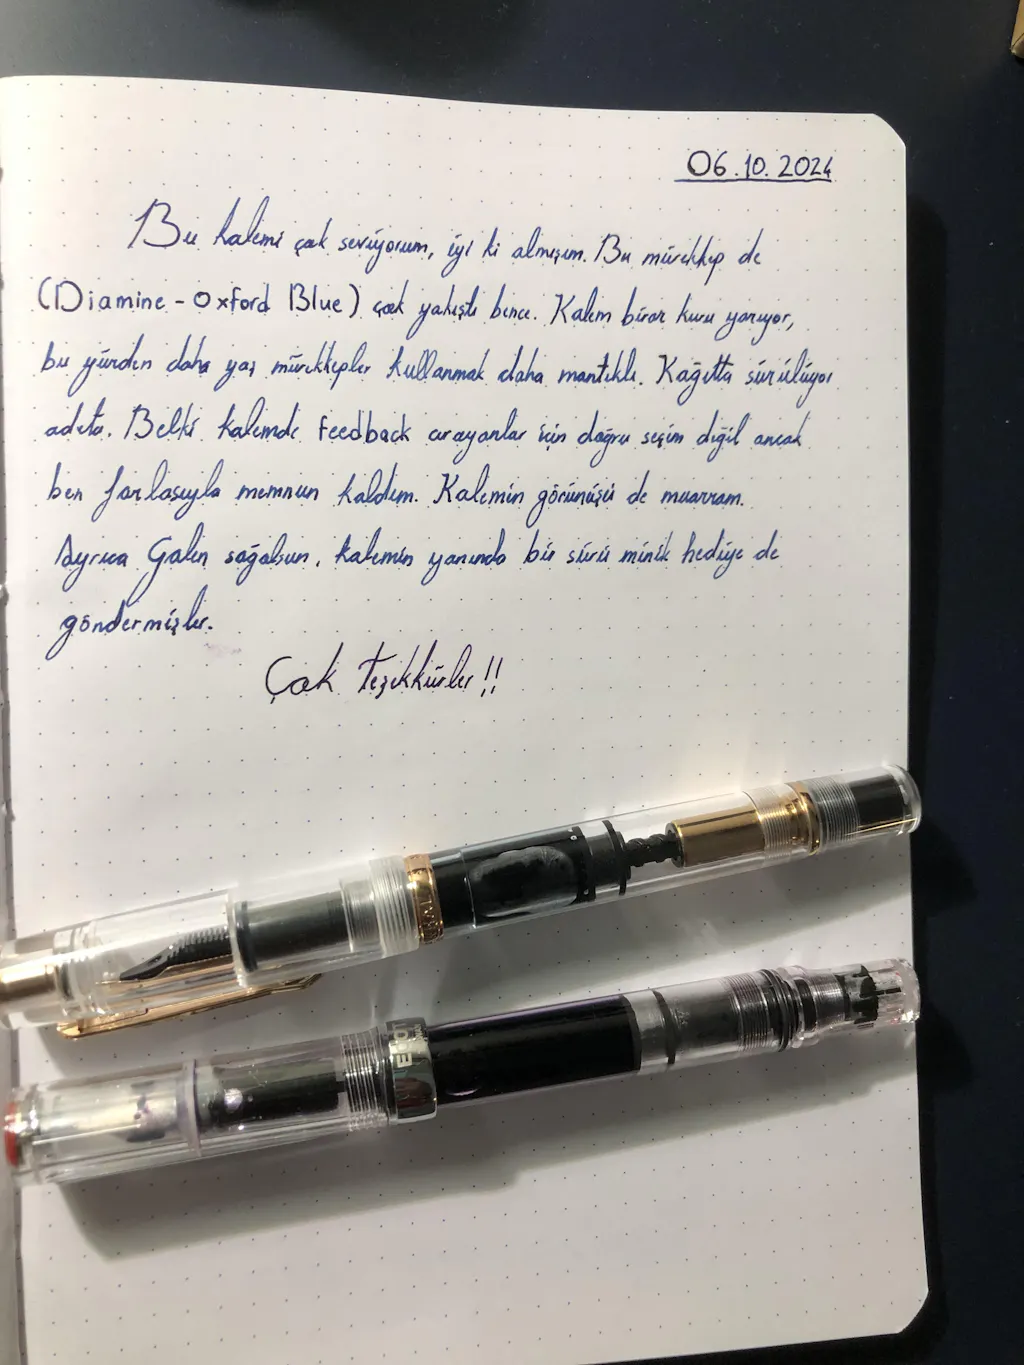 06.10.2024
Bu kalemi çok seviyorum, iyi ki almışım. Bu mürekkep de
(Diamine - Oxford Blue) çok yakıştı bence. Kalem biraz kuru yazıyor,
bu yüzden daha yaş mürekkepler kullanmak daha mantıklı. Kağıtta sürülüyor
adeta. Belki kalemde feedback arayanlar için doğru seçim değil ancak
ben fazlasıyla memnun kaldım. Kalemin görünüşü de muazzam.
Ayrıca Galen sağolsun, kalemin yanında bir sürü minik hediye de
göndermişler.
Çok Teşekkürler!!